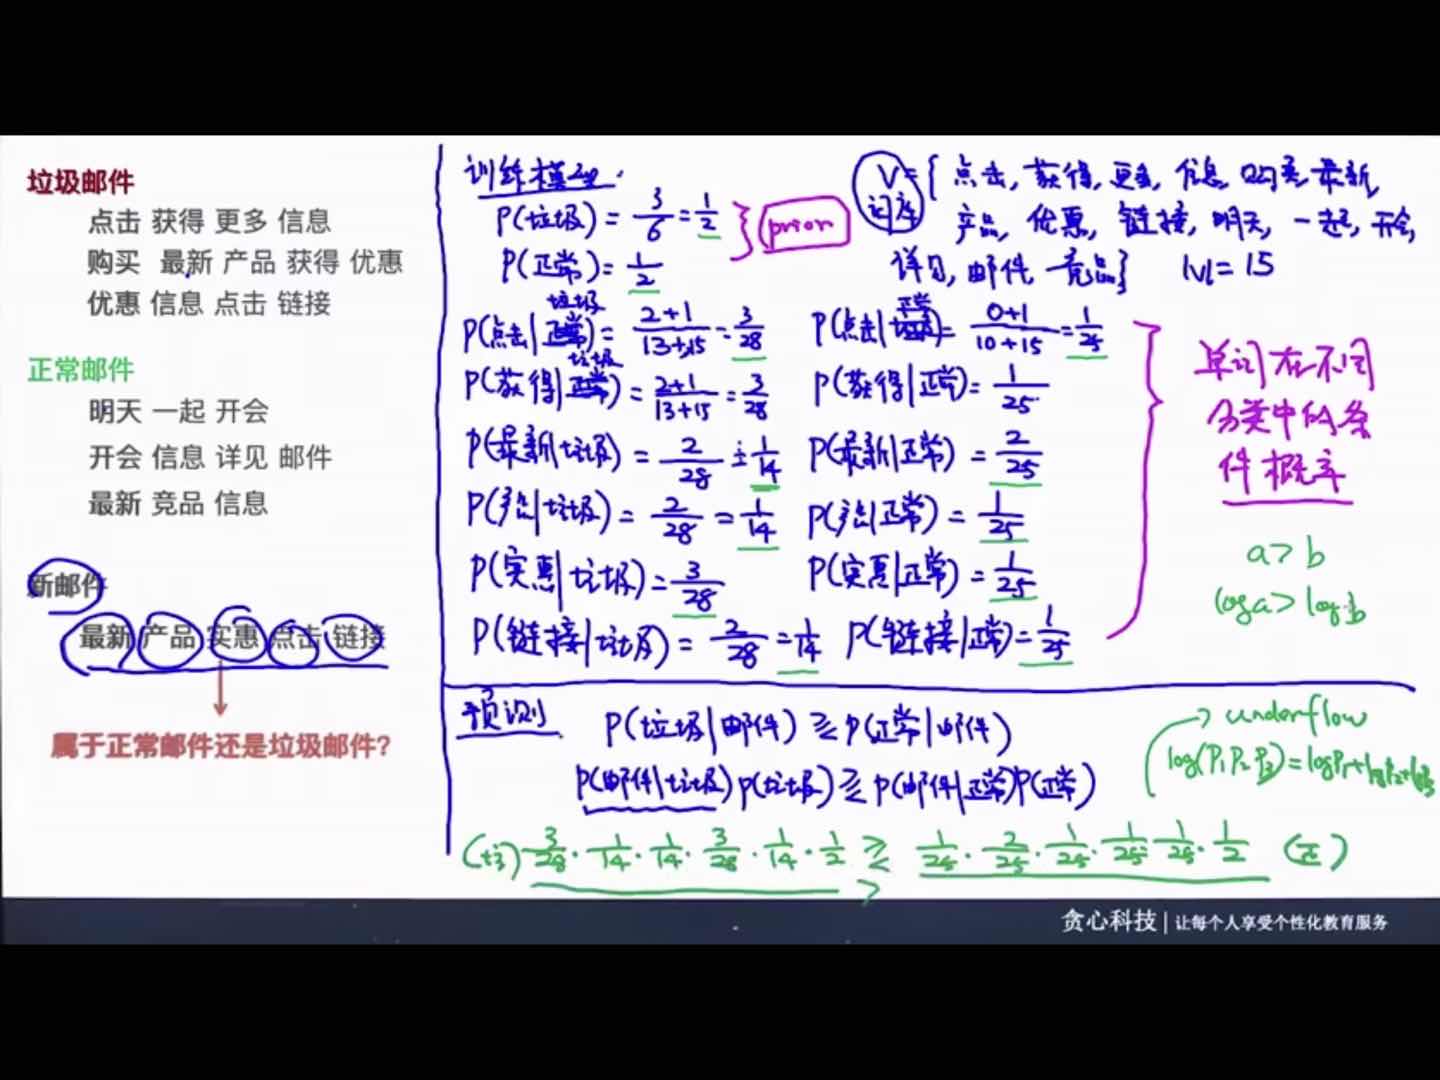 垃圾邮件
点击 获得 更多 信息
购买 最新 产品 获得 优惠
优惠 信息 点击 链接
正常邮件
明天 一起 开会
开会 信息 详见 邮件
最新 竞品 信息
新邮件
最新 产品 实惠 点击 链接
属于正常邮件还是垃圾邮件?
训练模型:
P(垃圾) = 3/6 = 1/2
P(正常) = 1/2
prior
V={点击, 获得, 更多, 信息, 购买, 最新,
词库
产品, 优惠, 链接, 明天, 一起, 开会,
详见, 邮件, 竞品} |V|= 15
P(点击|垃圾) = 2+1/13+15 = 3/28
P(点击|正常) = 0+1/10+15 = 1/25
P(获得|垃圾) = 2+1/13+15 = 3/28
P(获得|正常) = 1/25
P(最新|垃圾) = 2/28 = 1/14
P(最新|正常) = 2/25
P(产品|垃圾) = 2/28 = 1/14
P(产品|正常) = 1/25
P(实惠|垃圾) = 3/28
P(实惠|正常) = 1/25
P(链接|垃圾) = 2/28 = 1/14
P(链接|正常) = 1/25
单词在不同
分类中的条
件概率
a > b
log a > log b
预测
P(垃圾|邮件) ≥ P(正常|邮件)
P(邮件|垃圾) P(垃圾) ≥ P(邮件|正常) P(正常)
→ underflow
log(P₁ P₂ P₃) = log P₁ + log P₂ + log P₃
(垃) 3/28 · 1/14 · 1/14 · 3/28 · 1/14 · 1/2 ≥ 1/25 · 2/25 · 1/25 · 1/25 · 1/25 · 1/2 (正)
>
贪心科技 | 让每个人享受个性化教育服务